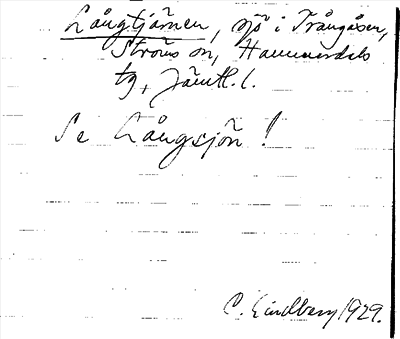 Långtjärnen, sjö i Trångåsen,
Ströms sn, Hammerdals
tg, Jämtl. l.
Se Långsjön!
C. Lindberg 1929.